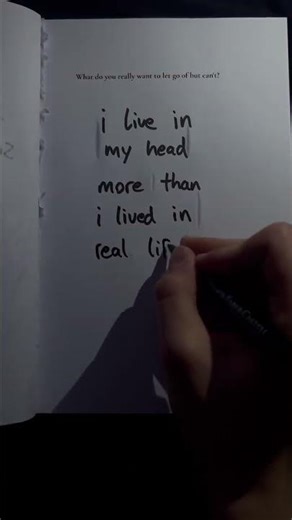 What do you really want to let go of but can't?
i live in
my head
more than
i lived in
real life